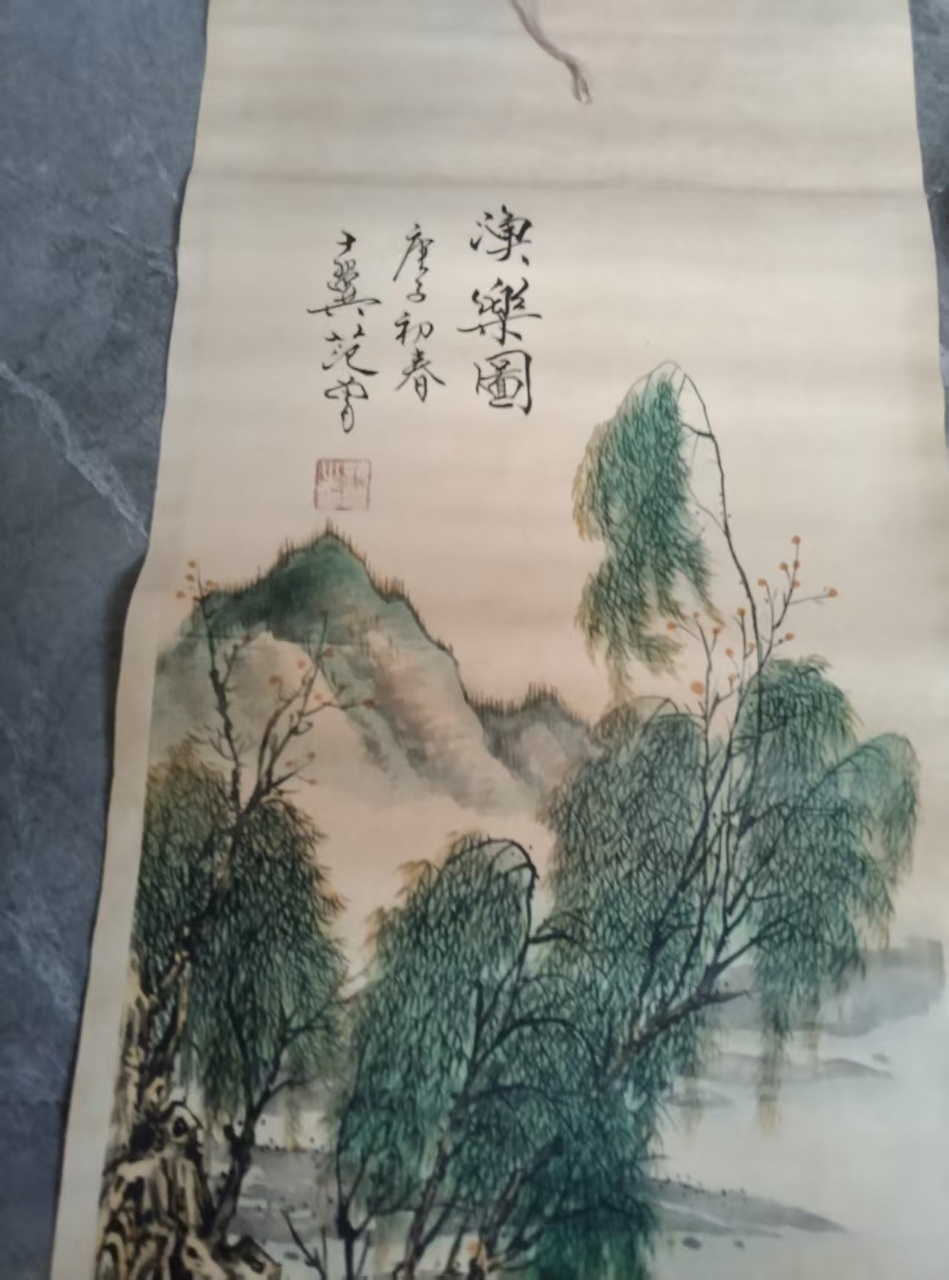 漁樂圖
庚子初春
十翼范曾